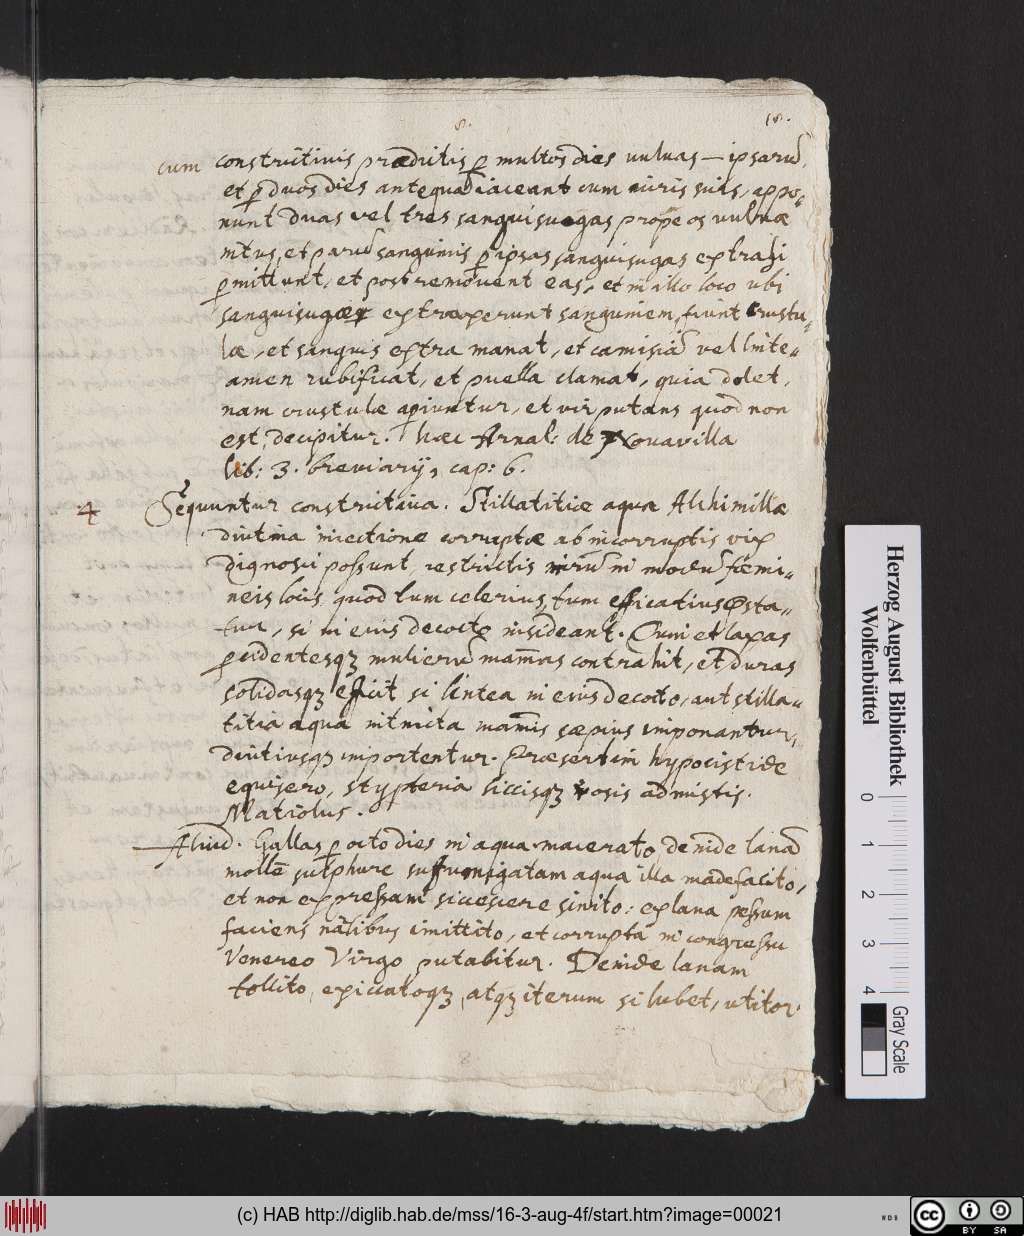 8. 18.
cum constrictivis prædictis p multos dies vulvas — ipsarū,
et p duos dies antequā iaceant cum viris suis, appo-
nunt duas vel tres sanguisugas prope os vulvæ
intus, et parū sanguinis p ipsas sanguisugas extrahi
pmittunt, et post removent eas, et in illo loco ubi
sanguisugæ extraxerunt sanguinem, fiunt crustu-
læ, et sanguis extra manat, et camisiā vel linte-
amen rubificat, et puella clamat, quia dolet,
nam crustulæ apiuntur, et vir putans quod non
est, decipitur. hæc Arnal: de Novavilla
lib: 3. breviarij, cap: 6.
4 Sequuntur constrictiva. Stillatitiæ aquæ Alchimillæ
diutina iniectione corruptæ ab incorruptis vix
dignosci possunt, restrictis mirū in modū fœmi-
neis locis, quod tum celerius, tum efficatius præsta-
tur, si in eius decocto insideant. Quin et laxas
pcidentesqꝫ mulierū mam̄as contrahit, et duras
solidasqꝫ efficit si lintea in eius decocto, aut stilla-
titia aqua intincta mam̄is sæpius imponantur,
diutiusqꝫ importentur. Præsertim hypocistide
equisero, stypteria siccisqꝫ rosis admistis.
Matiolus.
Aliud. Gallas p octo dies in aqua macerato, deinde lanā
mollē sulphure suffumigatam aqua illa madefacito,
et non expressam siccescere sinito: ex lana pessum
faciens nālibus imittito, et corrupta in congressu
Venereo Virgo putabitur. Deinde lanam
tollito, exiccatoqꝫ, atqꝫ iterum si lubet, utitor.
Herzog August Bibliothek
Wolfenbüttel
0 1 2 3 4
Gray Scale
(c) HAB http://diglib.hab.de/mss/16-3-aug-4f/start.htm?image=00021
WDB
cc BY SA